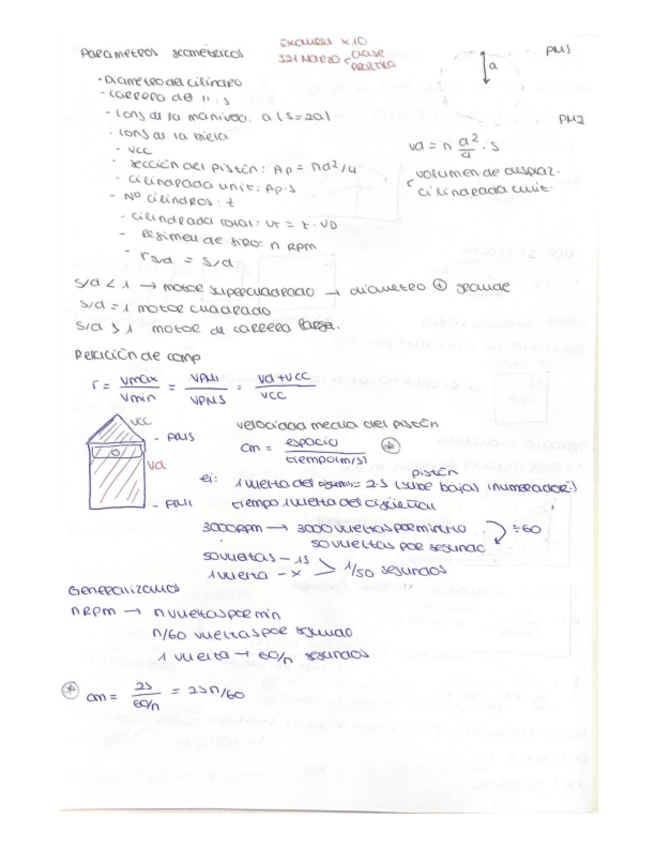 Parametros geométricos
Examen x10
21 Marzo clase práctica
PMS
a
PMI
- Diametro del cilindro
- carrera del ": s
- long de la manivela: a (s=2a)
- long de la biela
- Vcc
- sección del pistón: Ap = πd²/4
- cilindrada unit: Ap·s
- Nº cilindros: z
- cilindrada total: VT = z·VD
- Regimen de giro: n RPM
- rs/d = s/d
vd = π d²/4 · s
volumen de desplaz.
cilindrada unit.
s/d < 1 → motor supercuadrado → diametro + grande
s/d = 1 motor cuadrado
s/d > 1 motor de carrera larga.
Relación de comp
r = Vmax/Vmin = VPMI/VPMS = Vd+Vcc/Vcc
Vcc
- PMS
Vd
- PMI
velocidad media del pistón
cm = espacio/tiempo (m/s) *
pistón
ej: 1 vuelta del cigueñal = 2·s (sube baja) (numerador)
tiempo 1 vuelta del cigüeñal
3000rpm → 3000 vueltas por minuto
÷60
50 vueltas por segundo
50 vueltas - 1s
1 vuelta - x > 1/50 segundos
Generalizamos
n RPM → n vueltas por min
n/60 vueltas por segundo
1 vuelta → 60/n segundos
* cm = 2s/60/n = 2sn/60